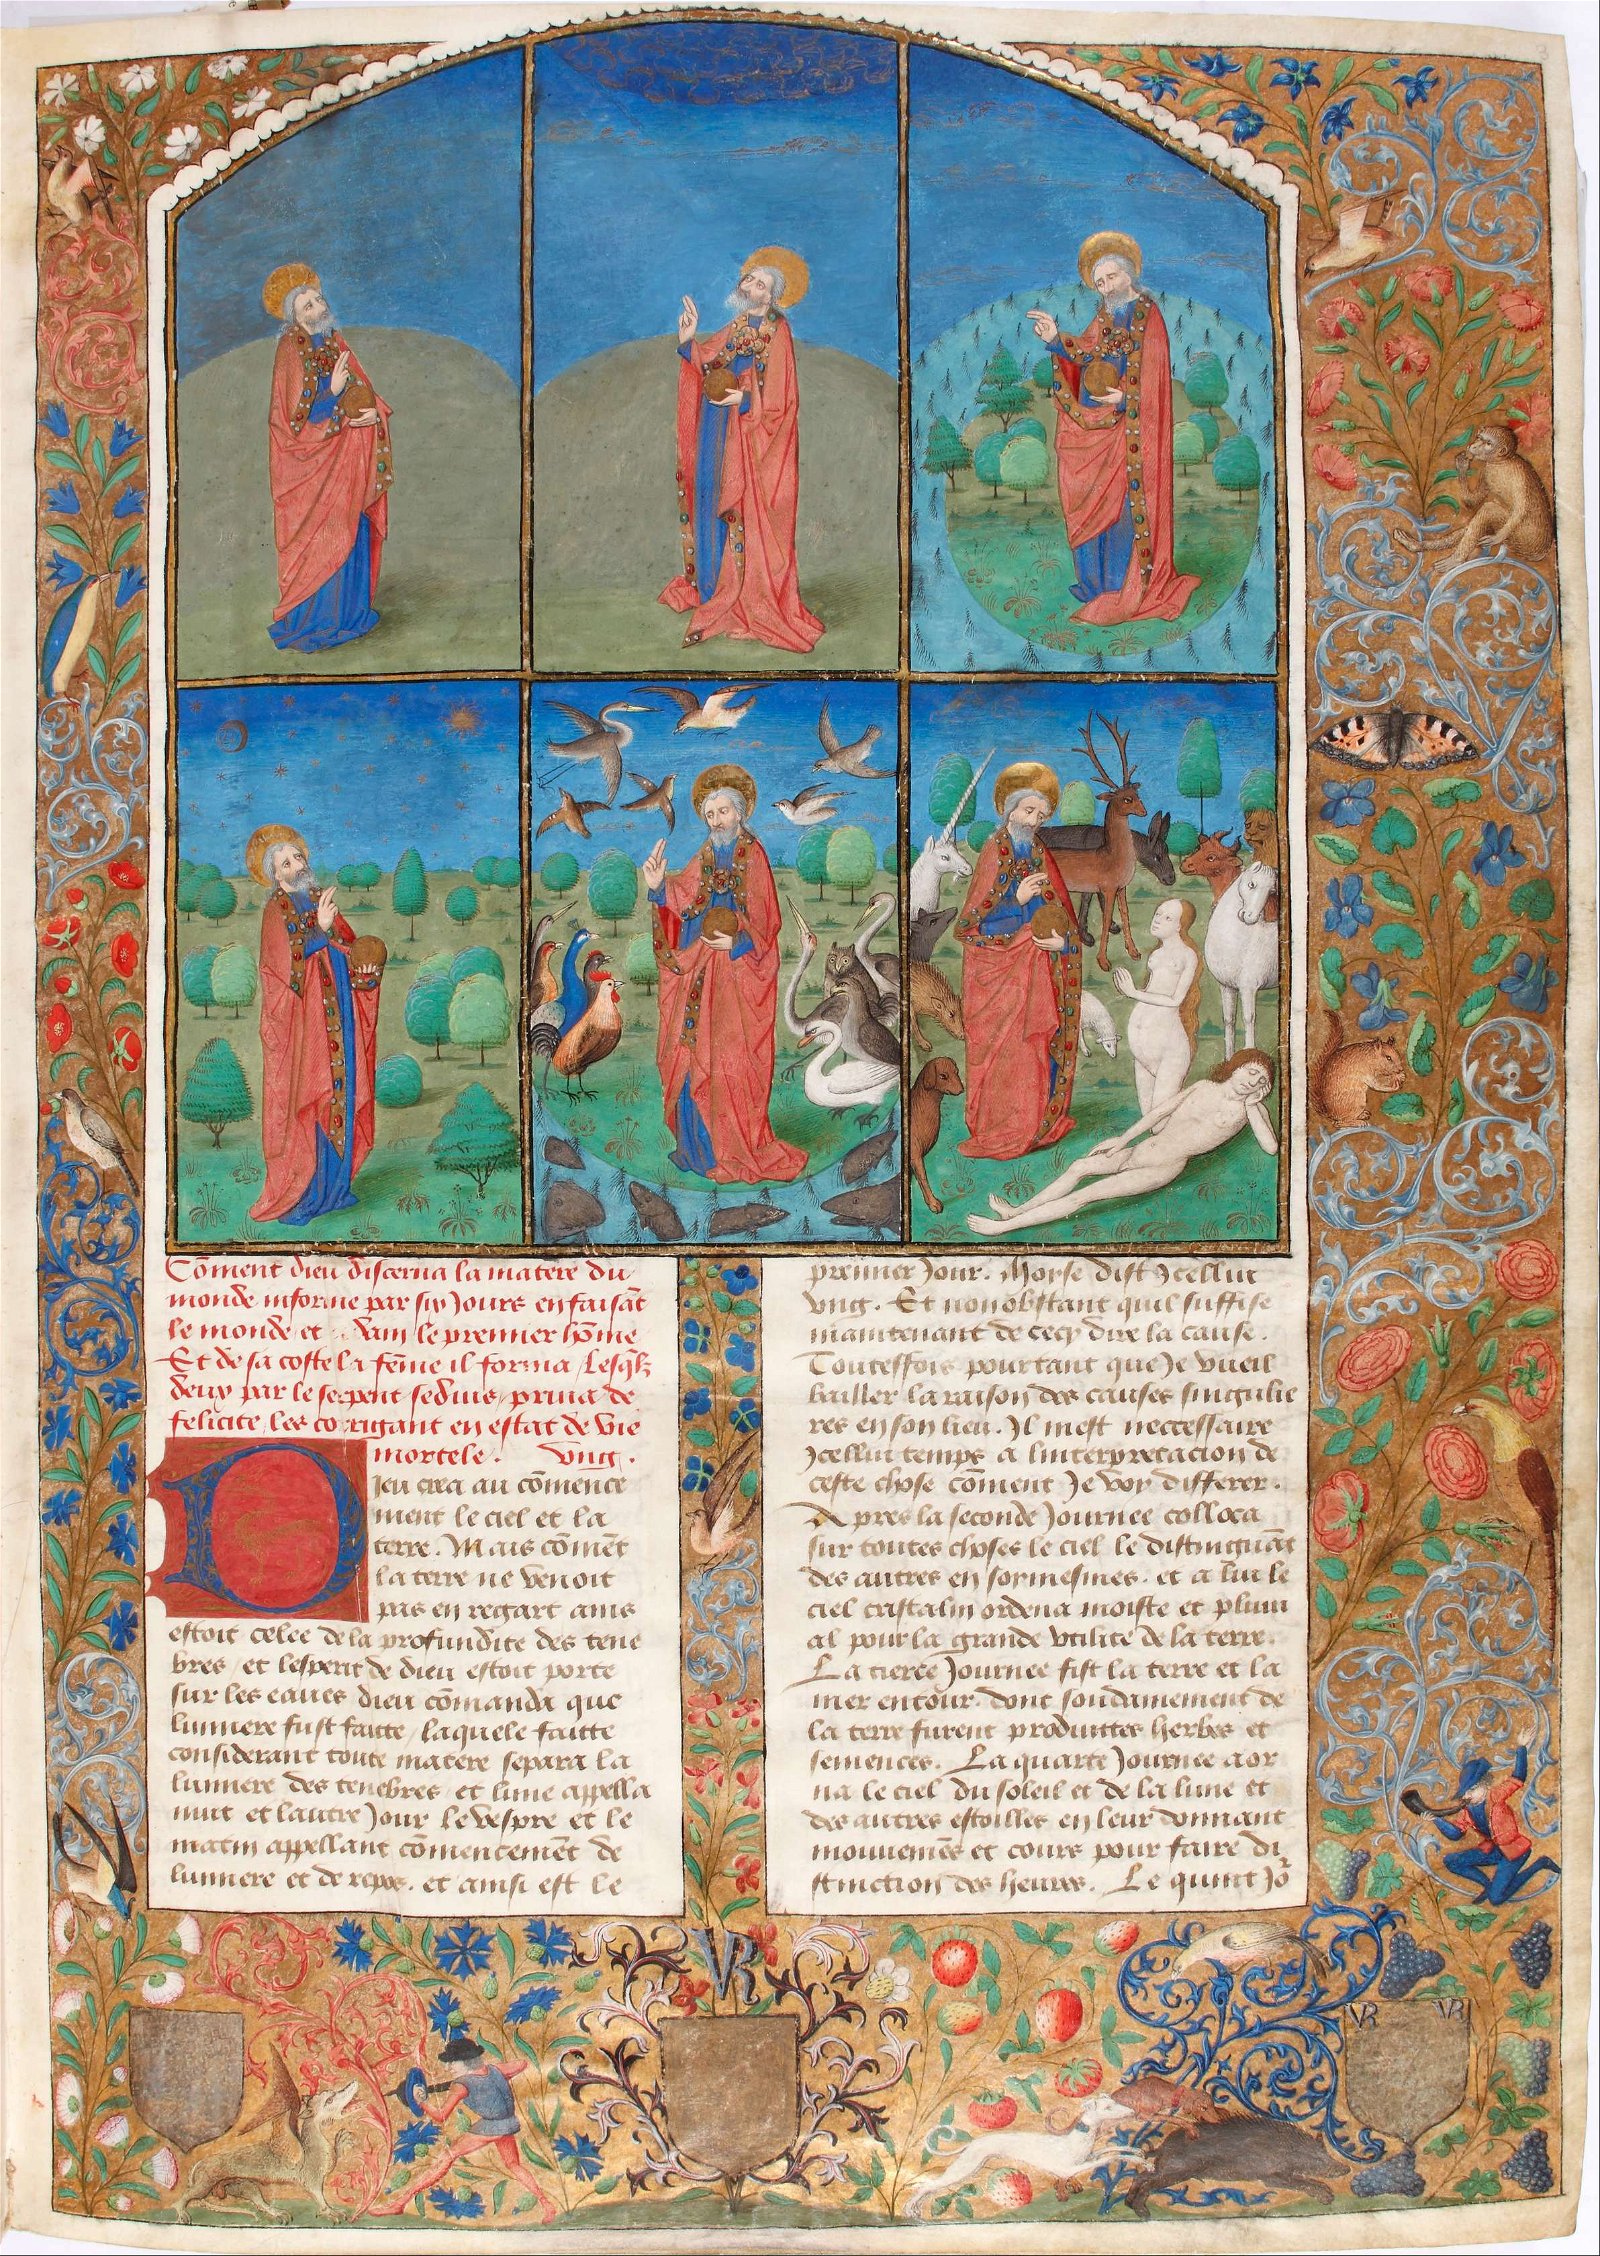 Cōment dieu discerna la matere du
monde informe par six Jours en faisāt
le monde et adam le premier hōme
Et de sa coste la fēme il forma / Lesqlz
deux par le serpent seduis / priua de
felicite, les corrigant en estat de vie
mortele. vng.
Dieu crea au cōmence
ment le ciel et la
terre. Mais cōmēt
la terre ne venoit
pas en regart ains
estoit celee de la profundite des tene
bres / et lesperit de dieu estoit porte
sur les eaues dieu cōmanda que
lumiere fust faitte / laquele faitte
considerant toute matere separa la
lumiere des tenebres / et lune appella
nuit et lautre Jour le vespre et le
matin appellant cōmencemēt de
lumiere et de repos. et ainsi est le
premier Jour. Moyse dist Jcellui
vng. Et non obstant quil suffise
maintenant de cecy dire la cause.
Touteffois pourtant que Je vueil
bailler la raison des causes singulie
res en son lieu. Il mest neccessaire
Jcellui temps a linterpretacion de
ceste chose cōment Je voy differer.
Apres la seconde Journee colloca
sur toutes choses le ciel le distinguāt
des autres en soymesmes. et a lui le
ciel cristalin ordena moiste et pluui
al pour la grande vtilite de la terre.
La tierce Journee fist la terre et la
mer entour. dont soudainement de
la terre furent produittes herbes et
semences. La quarte Journee aor
na le ciel du soleil et de la lune et
des autres estoilles en leur donnant
mouuemēs et cours pour faire di
stinction des heures. Le quint Jo
VR
VR VR